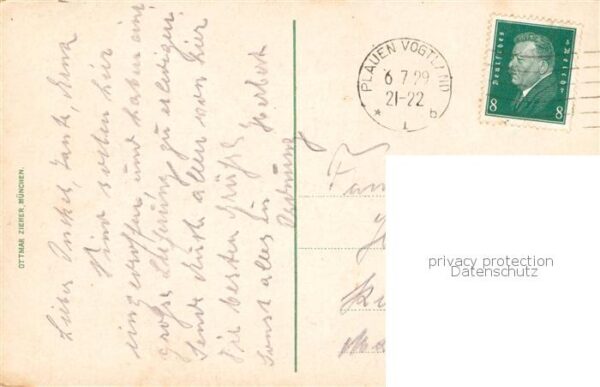 Lieber Onkel, Tante, Erna!
Sind soeben hier
eingetroffen und haben eine
große Lieferung zu erledigen.
Sende Euch allen von hier
die besten Grüße
Sonst alles in
Ordnung Herbert
OTTMAR ZIEHER, MÜNCHEN.
PLAUEN VOGTLAND
6 7 29
21-22
* 1 b
Deutsches Reich
8 8
Fam
privacy protection
Datenschutz